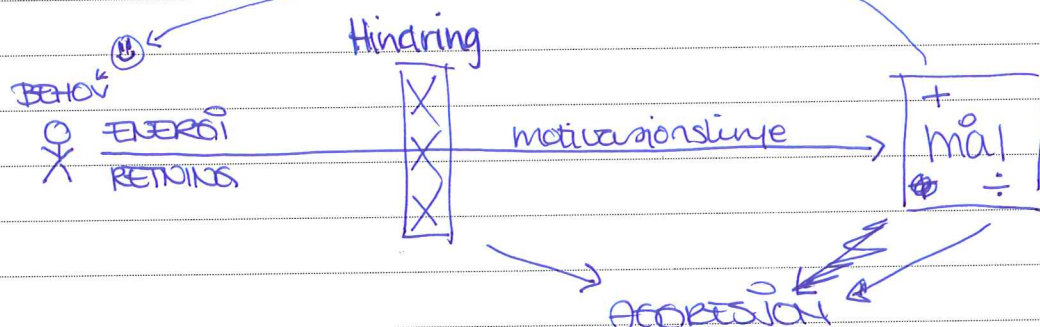 Hindring
BEHOV
ENERGI
RETNING
motivasjonslinje
+
mål
÷
AGGRESJON